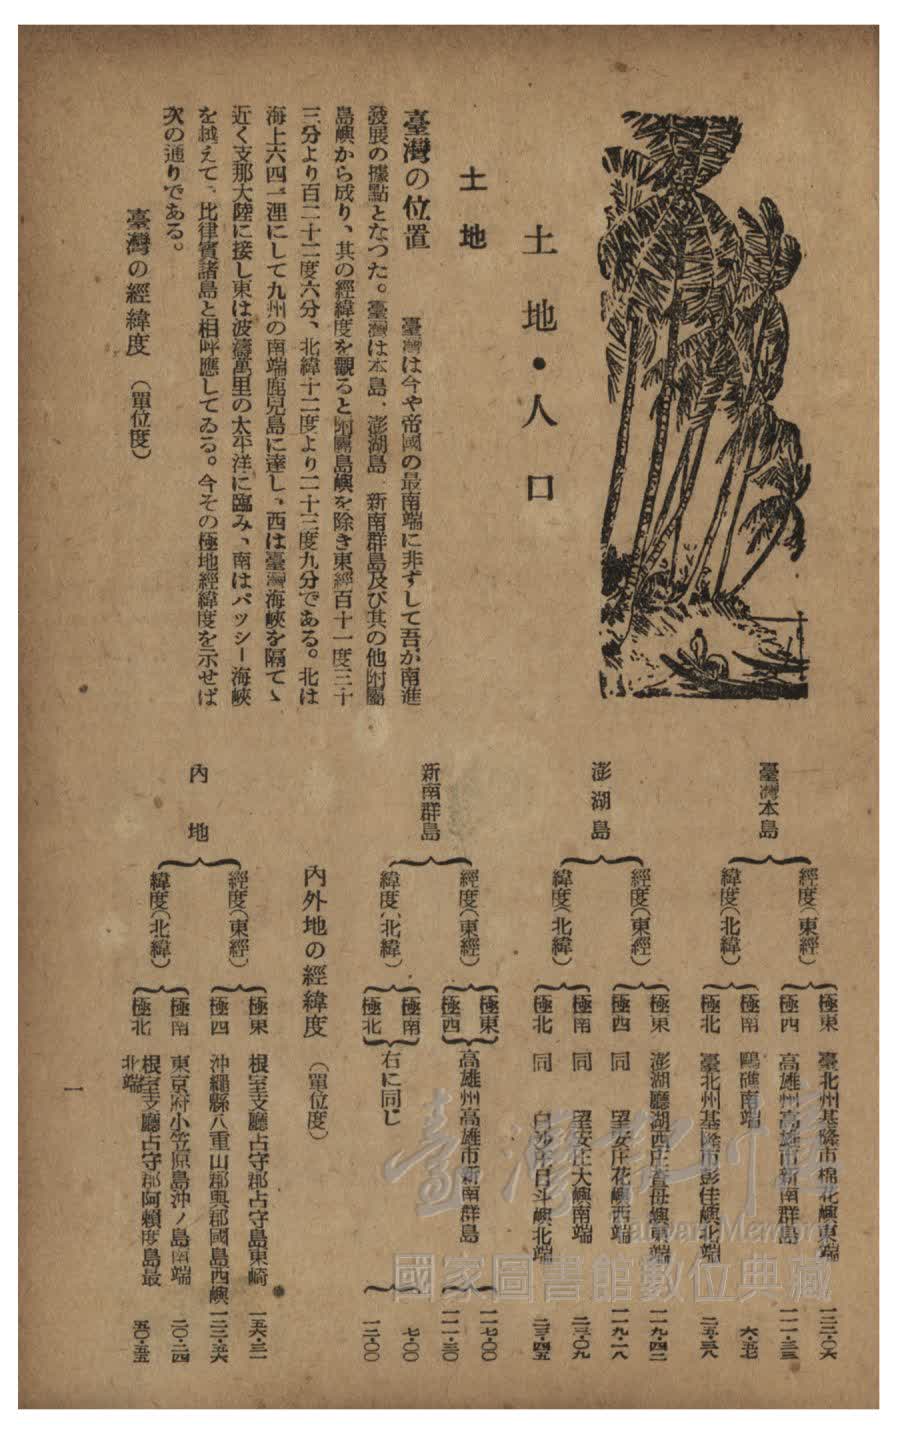 土地・人口
土地
臺灣の位置　臺灣は今や帝國の最南端に非ずして吾が南進
發展の據點となつた。臺灣は本島、澎湖島、新南群島及び其の他附屬
島嶼から成り、其の經緯度を觀ると附屬島嶼を除き東經百十一度三十
三分より百二十二度六分、北緯十二度より二十三度九分である。北は
海上六四一浬にして九州の南端鹿兒島に達し、西は臺灣海峽を隔てゝ
近く支那大陸に接し東は波濤萬里の太平洋に臨み、南はバッシー海峽
を越えて、比律賓諸島と相呼應してゐる。今その極地經緯度を示せば
次の通りである。
臺灣の經緯度（單位度）
臺灣本島
經度（東經）
極東　臺北州基隆市棉花嶼東端　一二二・〇六
極西　高雄州高雄市新南群島　一一一・三三
緯度（北緯）
極南　鵝礁南端　六・五七
極北　臺北州基隆市彭佳嶼北端　二五・三八
澎湖島
經度（東經）
極東　澎湖廳湖西庄査母嶼東端　一一九・四二
極西　同　望安庄花嶼西端　一一九・一八
緯度（北緯）
極南　同　望安庄大嶼南端　二三・〇九
極北　同　白沙庄目斗嶼北端　二三・四五
新南群島
經度（東經）
極東　高雄州高雄市新南群島　一一七・〇〇
極西　一一一・三〇
緯度（北緯）
極南　右に同じ　七・〇〇
極北　一二・〇〇
內外地の經緯度（單位度）
內地
經度（東經）
極東　根室支廳占守郡占守島東崎　一五六・三一
極西　沖繩縣八重山郡與那國島西嶼　一二二・五六
緯度（北緯）
極南　東京府小笠原島沖ノ島南端　二〇・二四
極北　根室支廳占守郡阿賴度島最
北端　五〇・五五
一
臺灣記憶
Taiwan Memory
國家圖書館數位典藏